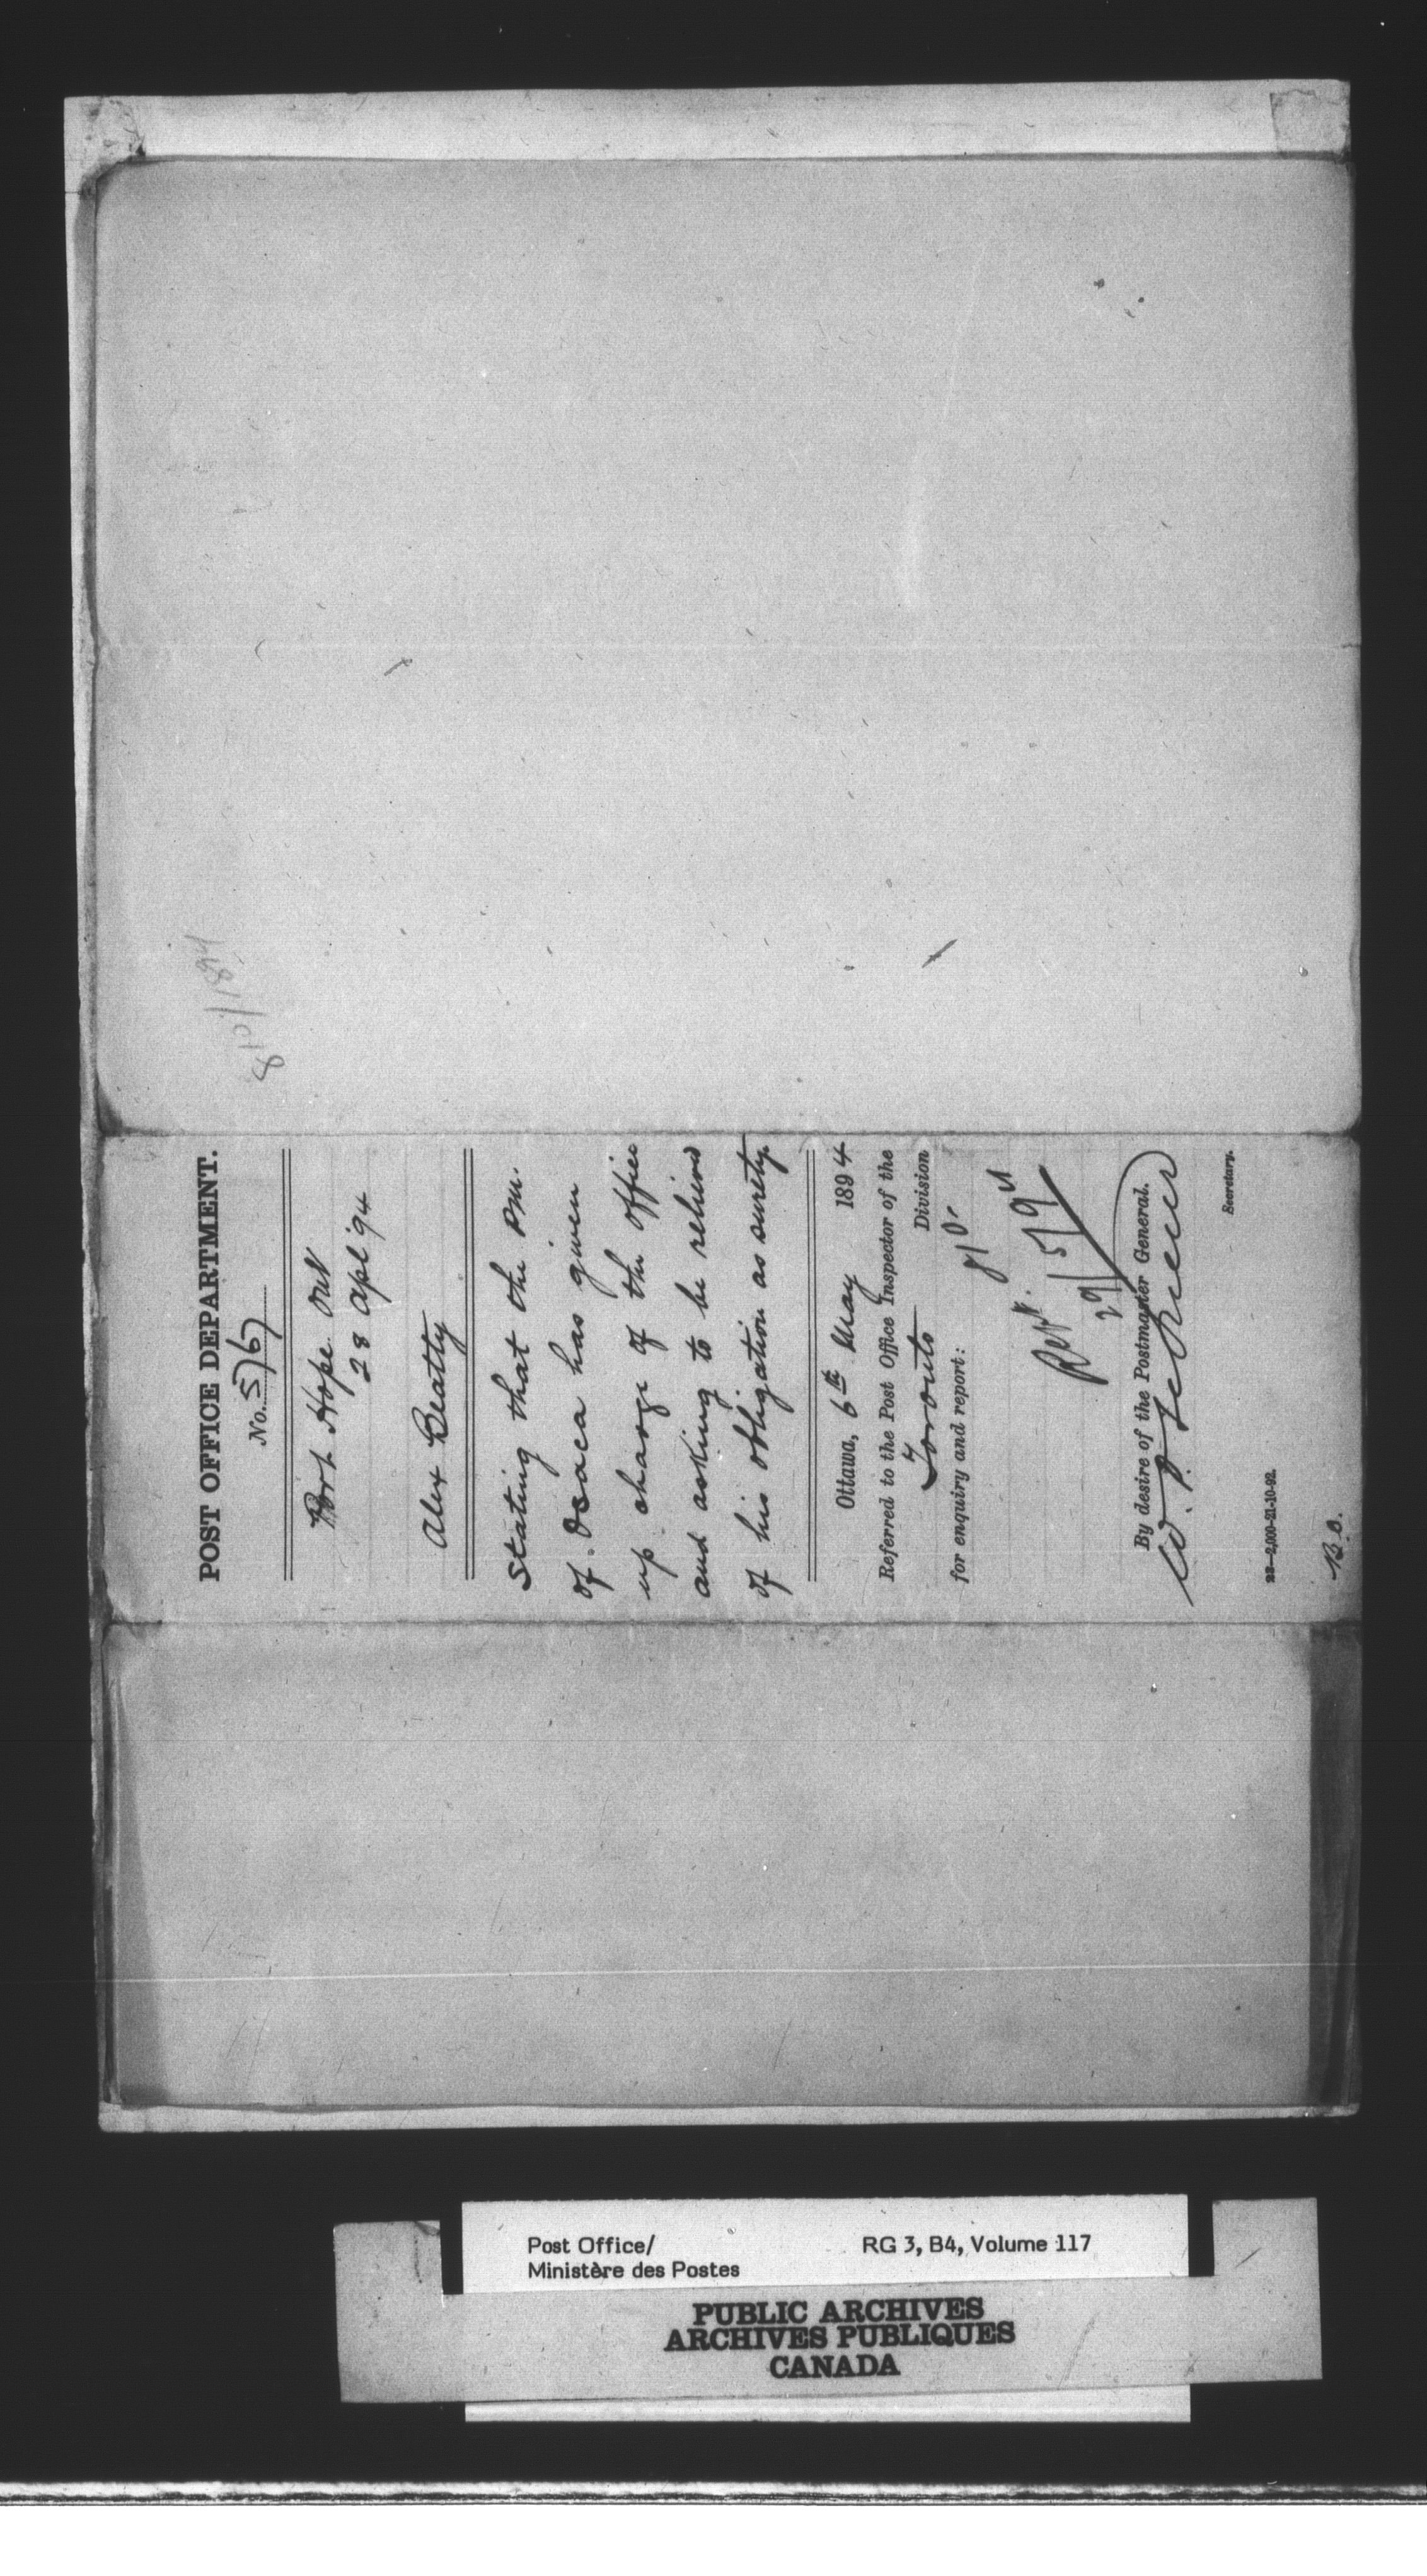 810/1894
POST OFFICE DEPARTMENT.
No. 5767
Port Hope Ont
28 Apl '94
Alex Beatty
Stating that the PM.
of Osaca has given
up charge of the office
and asking to be relieved
of his obligation as surety
Ottawa, 6th May 1894
Referred to the Post Office Inspector of the
Toronto Division
for enquiry and report:
29/5/94
By desire of the Postmaster General.
Secretary.
22—2,000-21-10-92.
B.O.
Post Office/
Ministère des Postes
RG 3, B4, Volume 117
PUBLIC ARCHIVES
ARCHIVES PUBLIQUES
CANADA